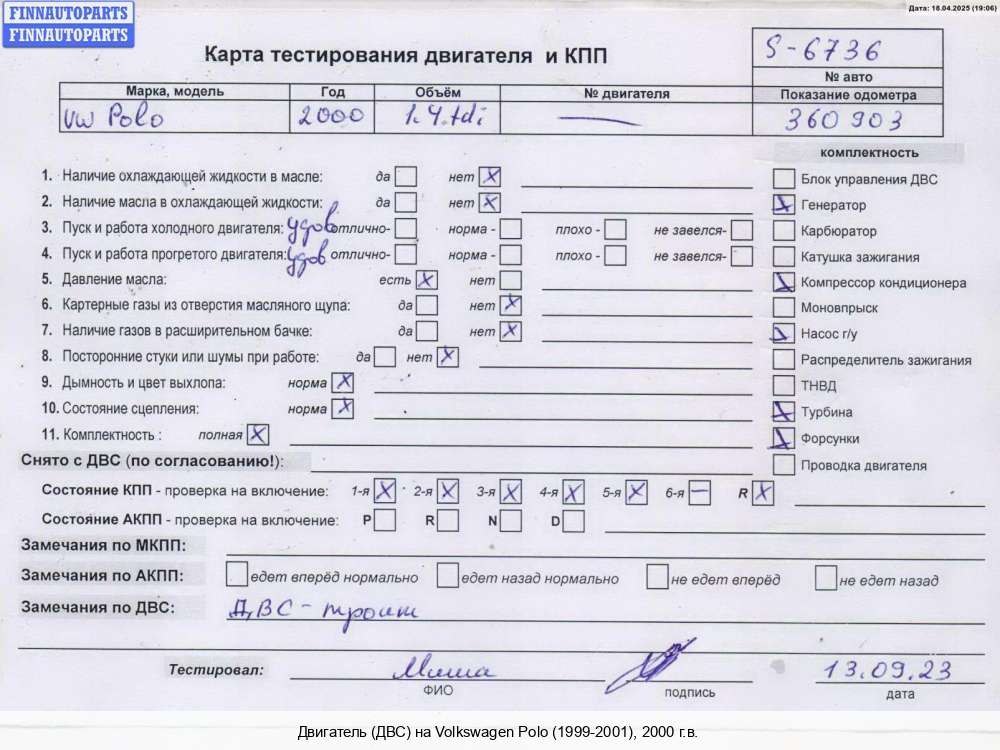 FINNAUTOPARTS
FINNAUTOPARTS
Дата: 18.04.2025 (19:06)
Карта тестирования двигателя и КПП
S-6736
№ авто
Марка, модель Год Объём № двигателя Показание одометра
VW Polo 2000 1.4.tdi — 360 903
комплектность
1. Наличие охлаждающей жидкости в масле: да нет X
Блок управления ДВС
2. Наличие масла в охлаждающей жидкости: да нет X
Генератор
3. Пуск и работа холодного двигателя: удов отлично- норма - плохо - не завелся-
Карбюратор
4. Пуск и работа прогретого двигателя: удов отлично- норма - плохо - не завелся-
Катушка зажигания
5. Давление масла: есть X нет
Компрессор кондиционера
6. Картерные газы из отверстия масляного щупа: да нет X
Моновпрыск
7. Наличие газов в расширительном бачке: да нет X
Насос г/у
8. Посторонние стуки или шумы при работе: да нет X
Распределитель зажигания
9. Дымность и цвет выхлопа: норма X
ТНВД
10. Состояние сцепления: норма X
Турбина
11. Комплектность : полная X
Форсунки
Снято с ДВС (по согласованию!):
Проводка двигателя
Состояние КПП - проверка на включение: 1-я X 2-я X 3-я X 4-я X 5-я X 6-я — R X
Состояние АКПП - проверка на включение: P R N D
Замечания по МКПП:
Замечания по АКПП: едет вперёд нормально едет назад нормально не едет вперёд не едет назад
Замечания по ДВС: ДВС - троит
Тестировал: Миша 13.09.23
ФИО подпись дата
Двигатель (ДВС) на Volkswagen Polo (1999-2001), 2000 г.в.